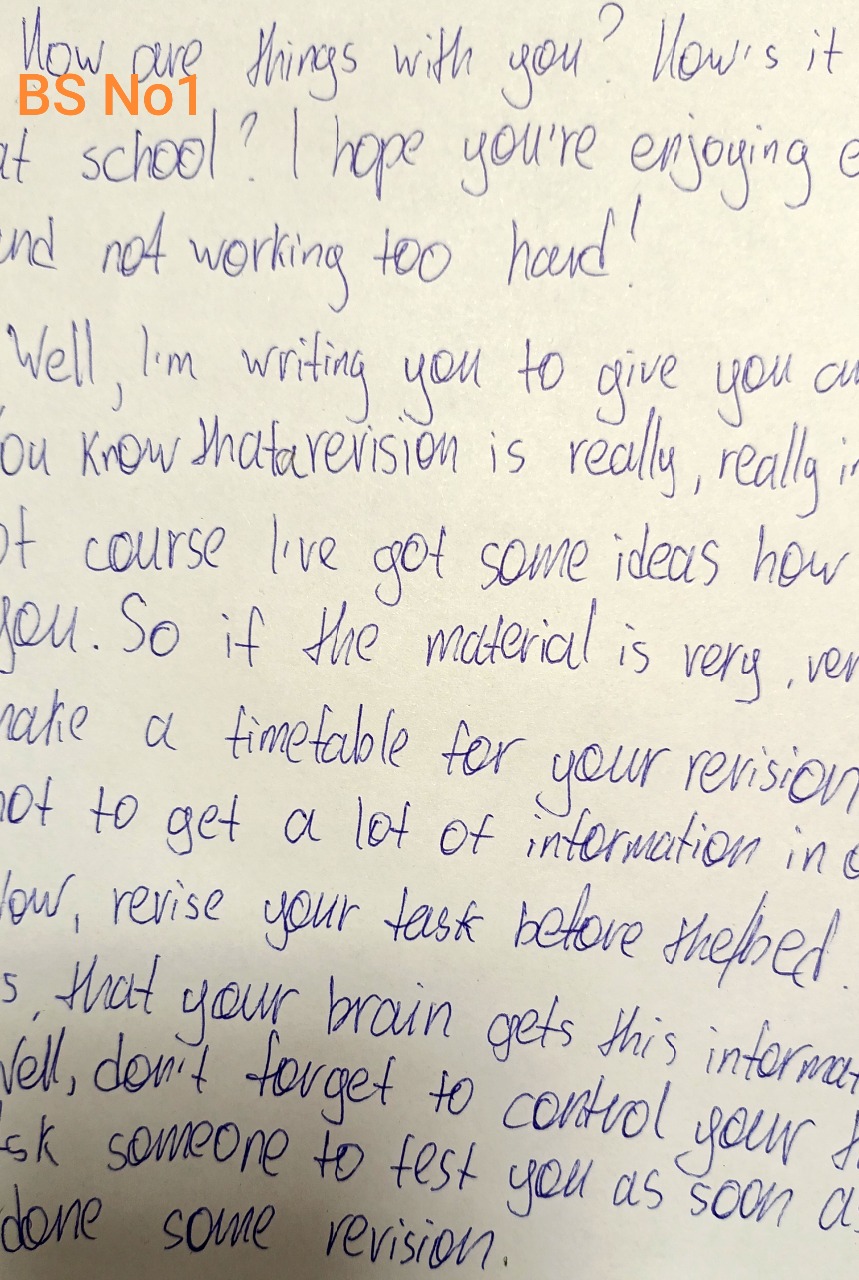 How are things with you? How's it
BS No1
at school? I hope you're enjoying e
and not working too hard!
Well, I'm writing you to give you
You know that a revision is really, really
Of course I've got some ideas how
you. So if the material is very, ver
make a timetable for your revision
not to get a lot of information in
Now, revise your task before the bed.
s, that your brain gets this informat
Well, don't forget to control your
Ask someone to test you as soon a
done some revision.